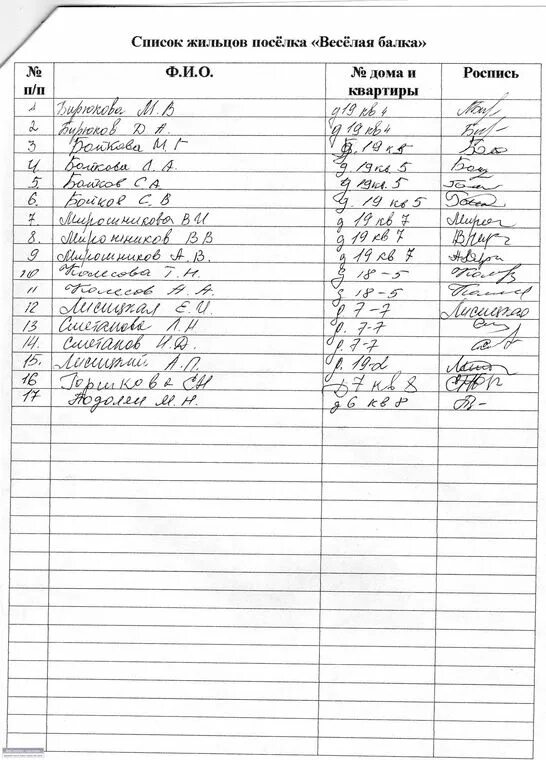 Список жильцов посёлка «Весёлая балка»
№ п/п Ф.И.О. № дома и квартиры Роспись
1 Бирюкова М.В д19 кв 4
2 Бирюков Д А. д 19 кв 4
3 Бойкова М.Г д. 19 кв 5
4 Бойкова Л.А. д. 19кв. 5
5. Бойков С.А д 19кв. 5
6. Бойков С.В д. 19 кв 5
7. Мирошникова В И д 19 кв 7
8. Мирошников В В д 19 кв 7
9 Мирошников А.В. д 19 кв 7
10 Колесова Т.Н. д 18-5
11 Колесов А.А. д 18-5
12 Лисицкая Е.И. д. 7-7
13 Сметанова Л.Н д. 7-7
14. Сметанов И.Д. д. 7-7
15. Лисицкий А.П. д. 19-2
16 Горшкова СН д 7 кв 8
17 М.Н. д 6 кв 8